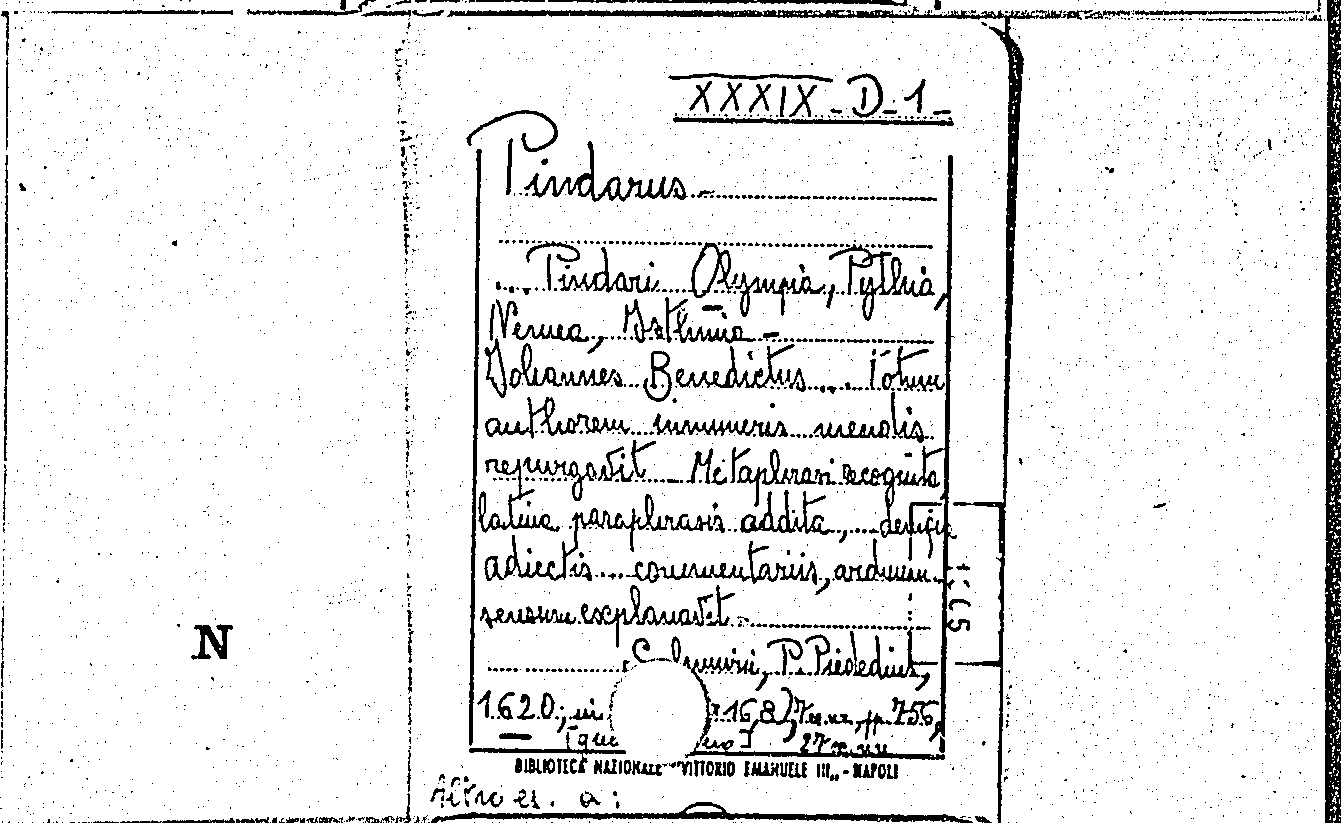 XXXIX-D-1-
Pindarus-
... Pindari Olympia, Pythia,
Nemea, Isthmia -
Johannes Benedictus ... totum
authorem innumeris mendis
repurgavit - Metaphrasi recognita,
latina paraphrasis addita, ...
adiectis ... commentariis, arduum
sensum explanavit -
P. Piededius,
1620; in 168) 7 n.nr., pp. 756,
27 n.nu
BIBLIOTECA NAZIONALE "VITTORIO EMANUELE III" - NAPOLI
Altro es. a:
N